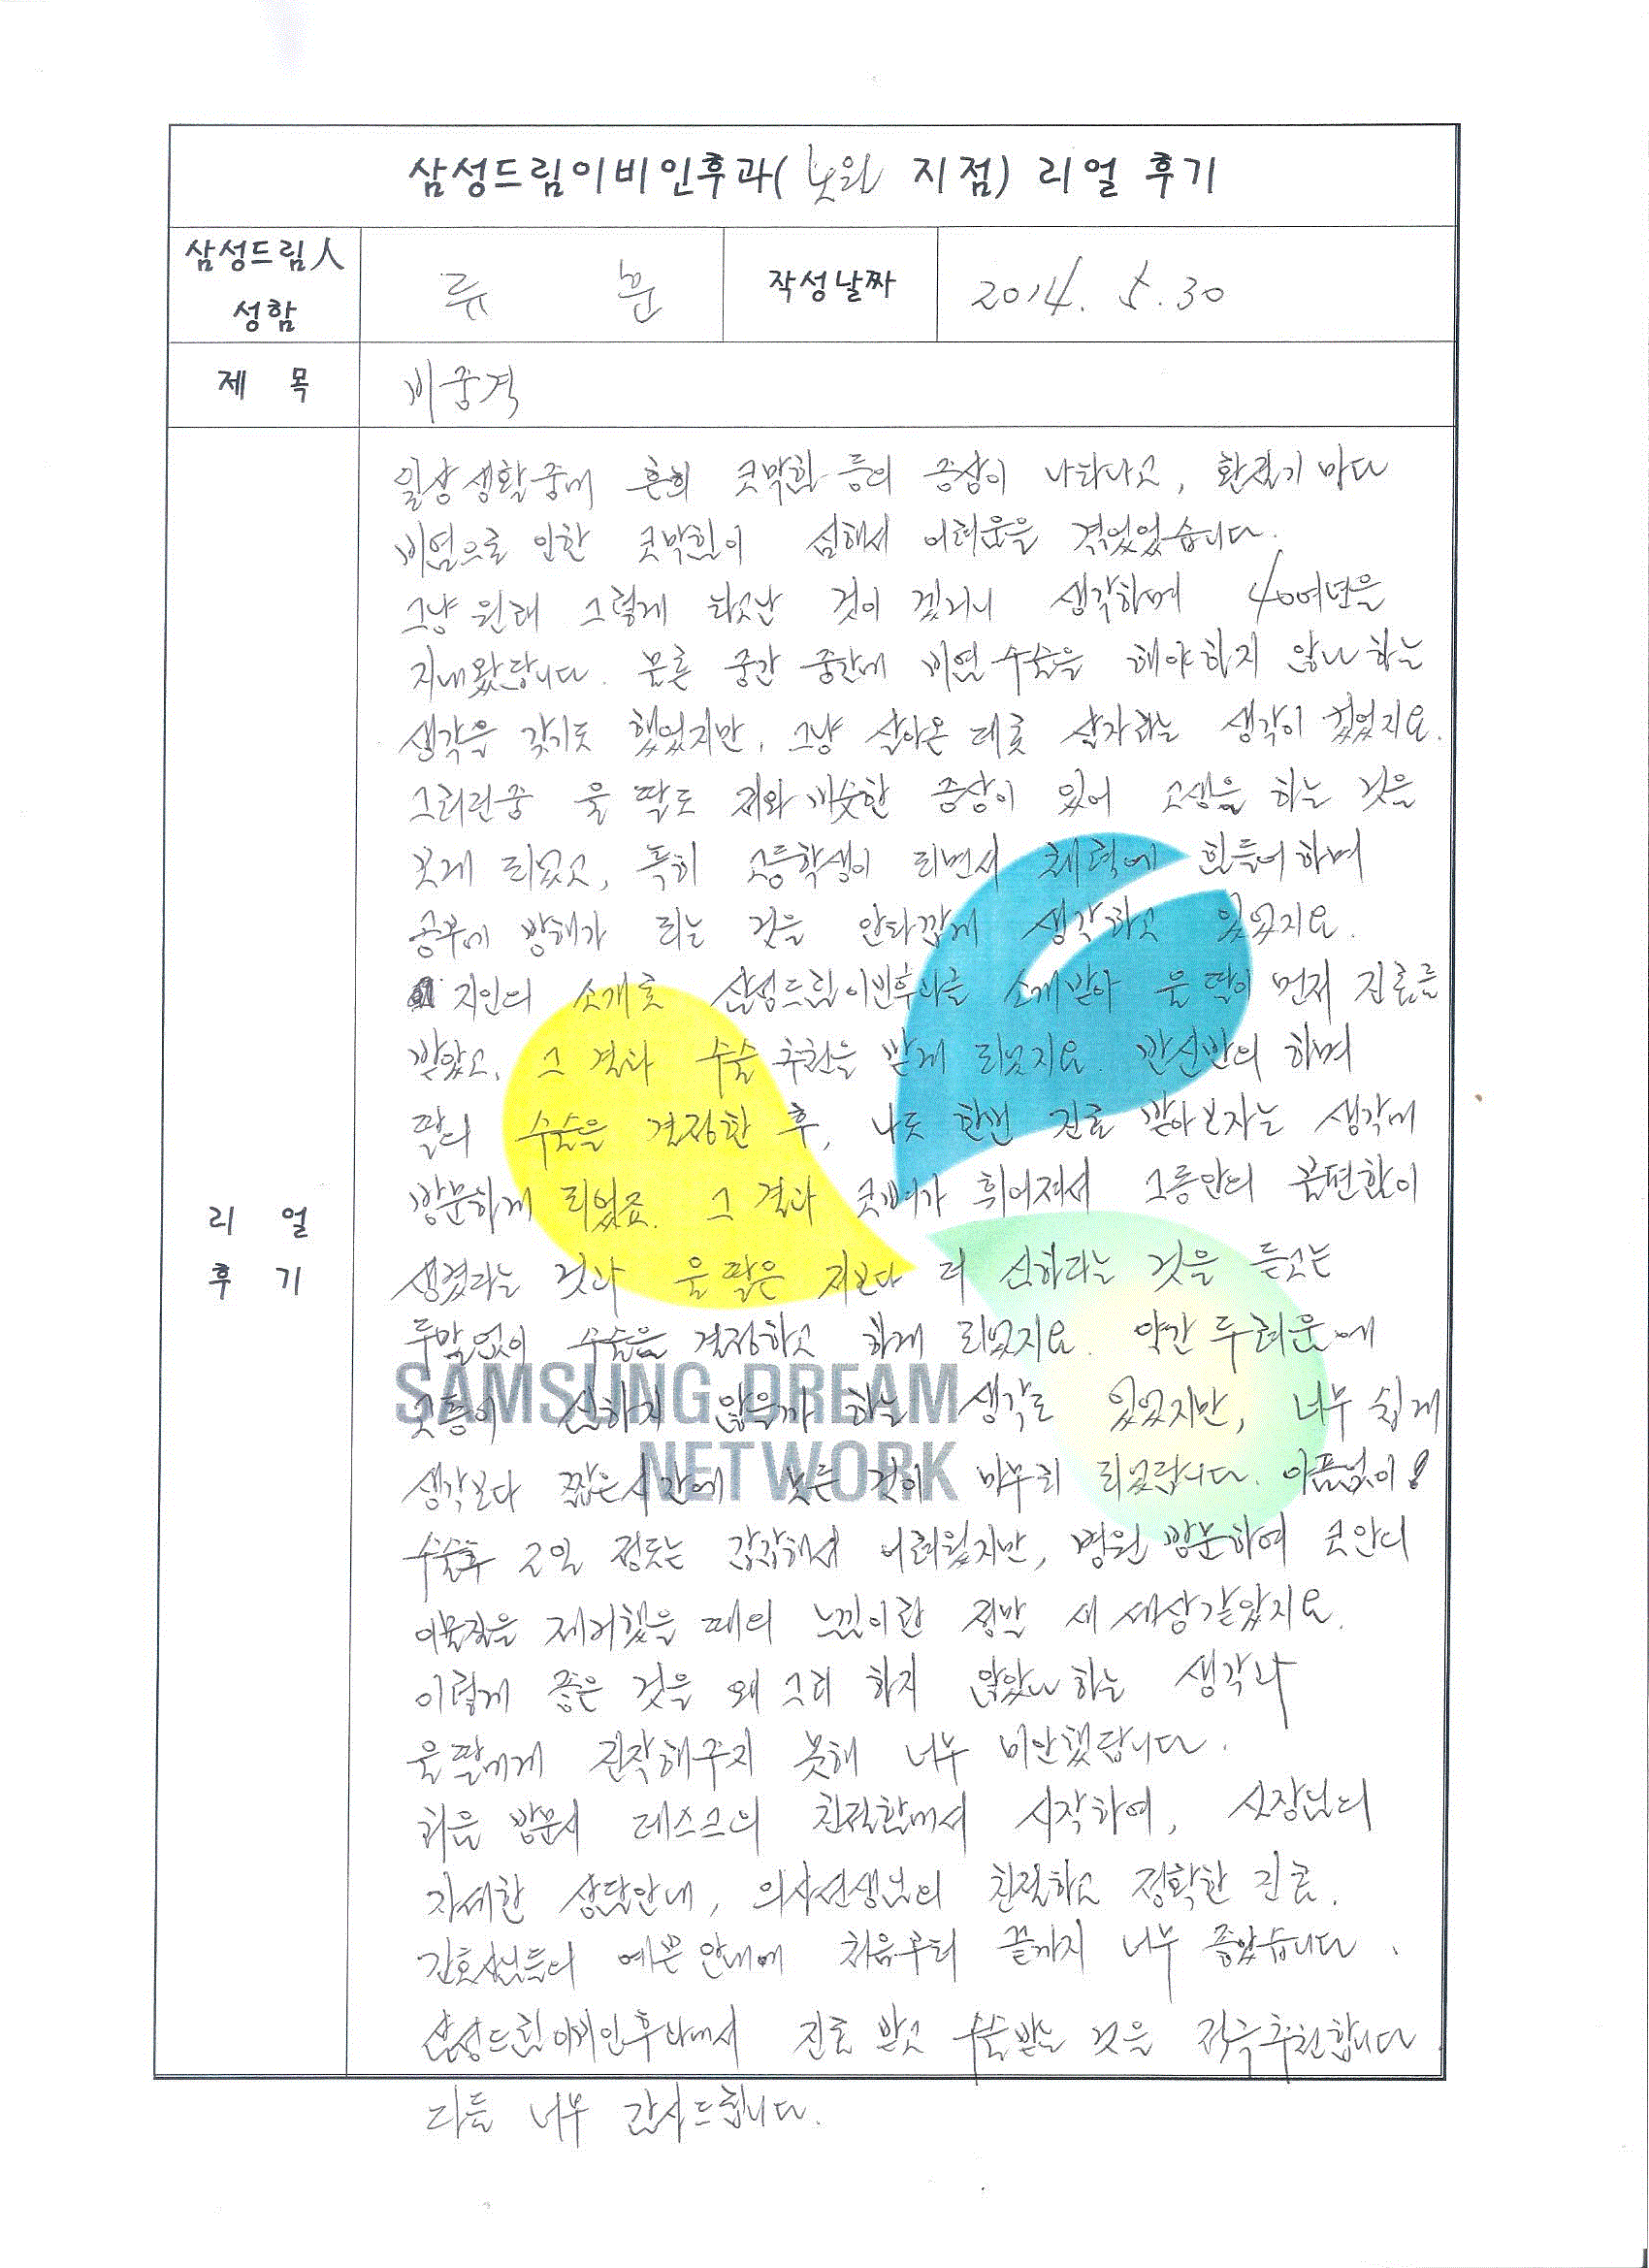 삼성드림이비인후과( 노원 지점) 리얼 후기
삼성드림人 성함
류 훈
작성날짜
2014. 5. 30
제 목
비중격
리 얼 후 기
일상생활중에 흔희 코막힘 등의 증상이 나타나고, 환절기 마다
비염으로 인한 코막힘이 심해서 어려움을 겪었었습니다.
그냥 원래 그렇게 타고난 것이 겠거니 생각하며 40여년을
지내왔답니다. 물론 중간 중간에 비염 수술을 해야하지 않나 하는
생각을 갖기도 했었지만, 그냥 살아온 대로 살자라는 생각이 컸었지요.
그러던중 울 딸도 저와 비슷한 증상이 있어 고생을 하는 것을
보게 되었고, 특히 고등학생이 되면서 체력에 힘들어 하며
공부에 방해가 되는 것을 안타깝게 생각하고 있었지요.
지인의 소개로 삼성드림이빈후과를 소개받아 울 딸이 먼저 진료를
받았고, 그 결과 수술 추천을 받게 되었지요. 반신반의 하며
딸의 수술을 결정한 후, 나도 한번 진료 받아보자는 생각에
방문하게 되었죠. 그 결과 콧뼈가 휘어져서 그동안의 불편함이
생겼다는 것과 울 딸은 저보다 더 심하다는 것을 듣고는
두말없이 수술을 결정하고 하게 되었지요. 약간 두려움에
고통이 심하지 않을까 하는 생각도 있었지만, 너무 쉽게
생각보다 짧은시간에 모든 것이 마무리 되었답니다. 아픔없이!
수술후 2일 정도는 갑갑해서 어려웠지만, 병원 방문하여 코안의
이물질을 제거했을 때의 느낌이란 정말 새 세상같았지요.
이렇게 좋은 것을 왜 그리 하지 않았나 하는 생각과
울 딸에게 진작해주지 못해 너무 미안했답니다.
처음 방문시 데스크의 친절함에서 시작하여, 실장님의
자세한 상담안내, 의사선생님의 친절하고 정확한 진료.
간호사님들의 예쁜 안내에 처음부터 끝까지 너무 좋았습니다.
삼성드림이비인후과에서 진료 받고 수술받는 것을 적극추천합니다.
다들 너무 감사드립니다.
SAMSUNG DREAM
NETWORK